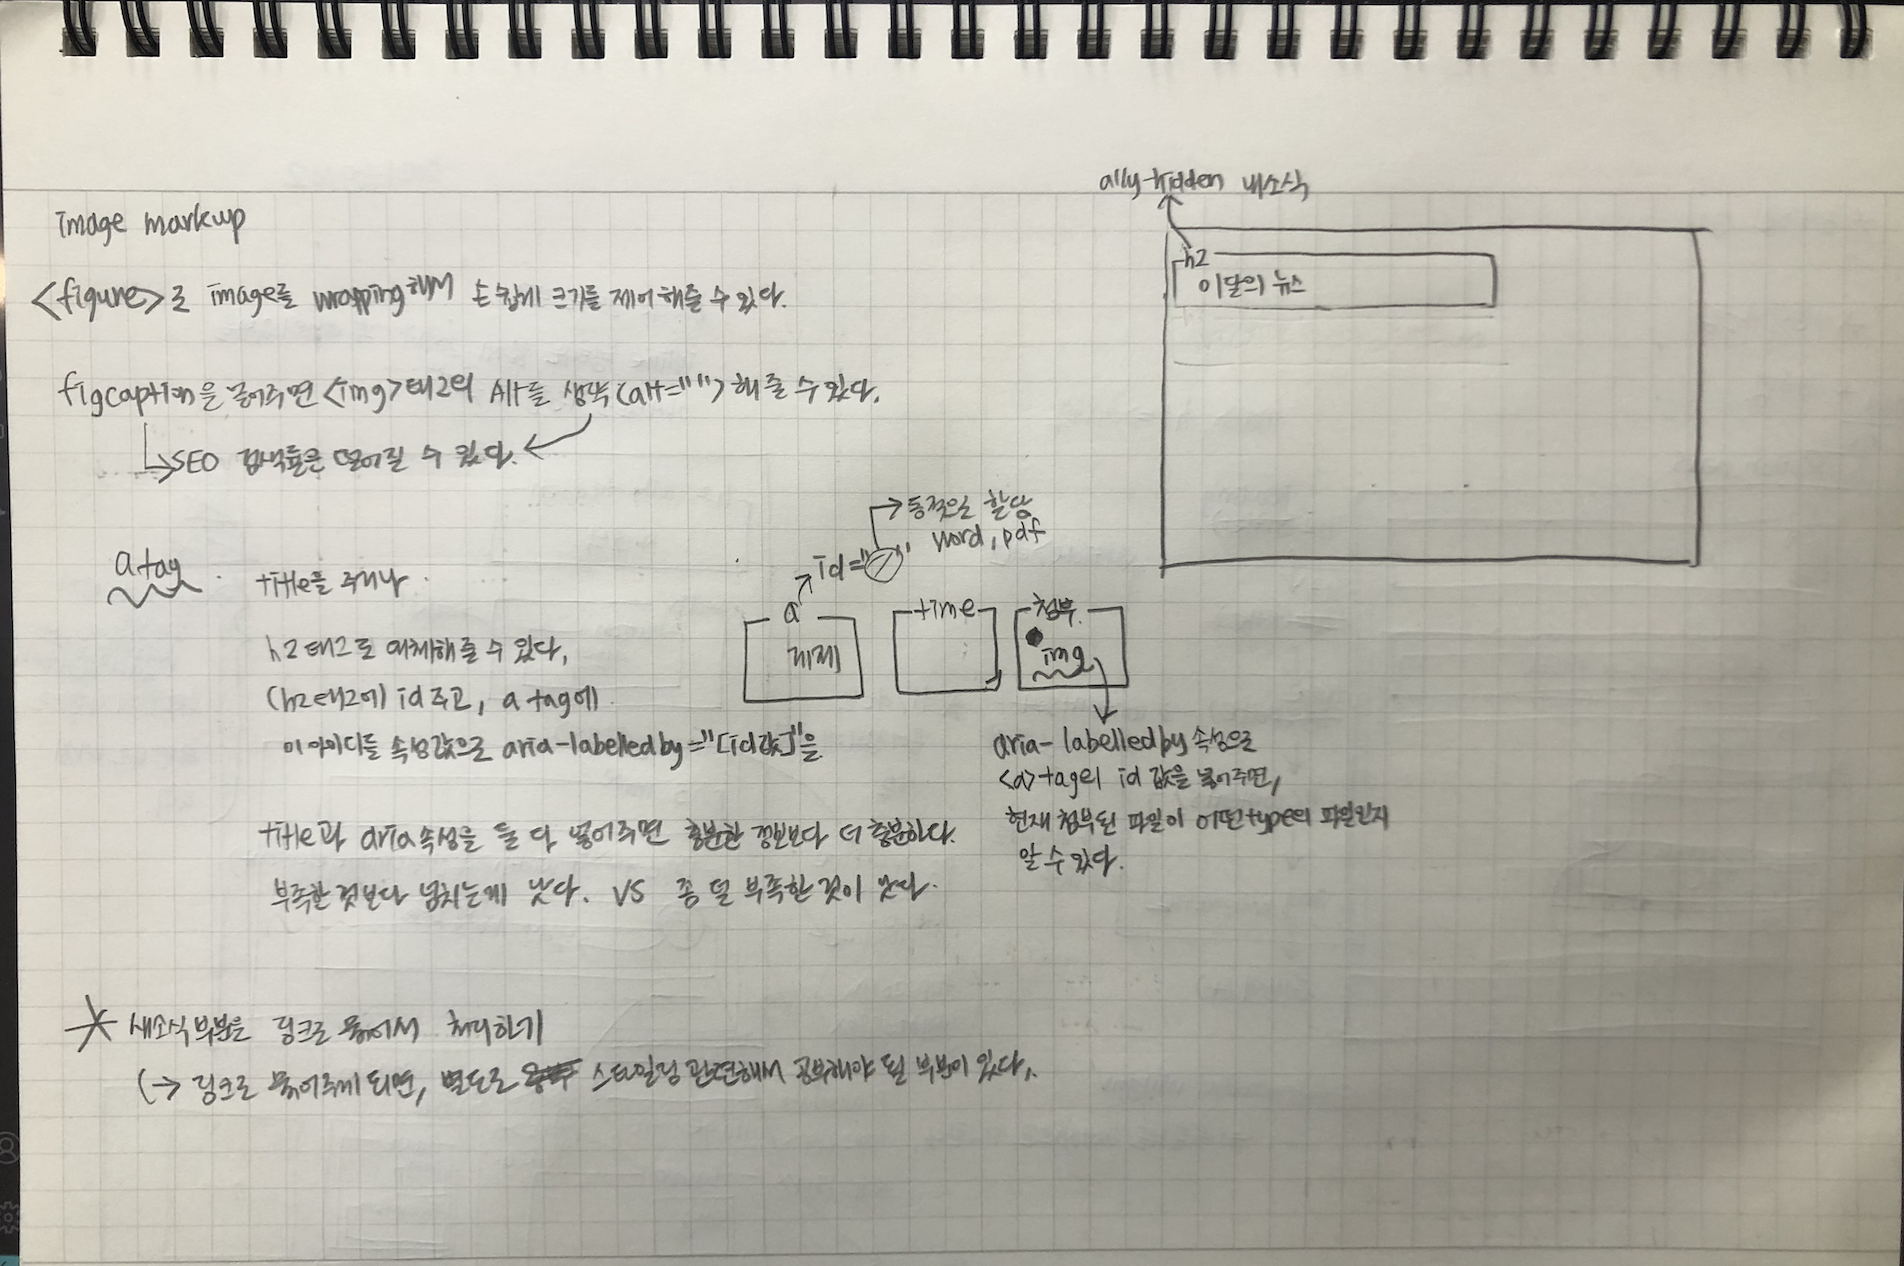 image markup
<figure>로 image를 wrapping해서 손쉽게 크기를 제어해줄 수 있다.
figcaption을 넣어주면 <img>태그의 Alt를 생략(alt="")해 줄 수 있다.
SEO 검색률은 떨어질 수 있다.
a tag
title을 주거나
h2태그로 대체해줄 수 있다,
(h2태그에) id 주고, a tag에
이 아이디를 속성값으로 aria-labelledby="[id값]"을
title과 aria속성을 둘 다 넣어주면 충분한 정보보다 더 충분하다.
부족한 것보다 넘치는게 낫다. VS 좀 덜 부족한 것이 낫다.
a11y-hidden 새소식
h2
이달의 뉴스
동적으로 할당
word, pdf
id=" "
a
time
첨부
img
aria-labelledby 속성으로
<a>tag의 id 값을 넣어주면,
현재 첨부된 파일이 어떤type의 파일인지
알 수 있다.
새소식 부분은 링크로 묶어서 처리하기
(→ 링크로 묶어주게 되면, 별도로 스타일링 관련해서 공부해야 될 부분이 있다.